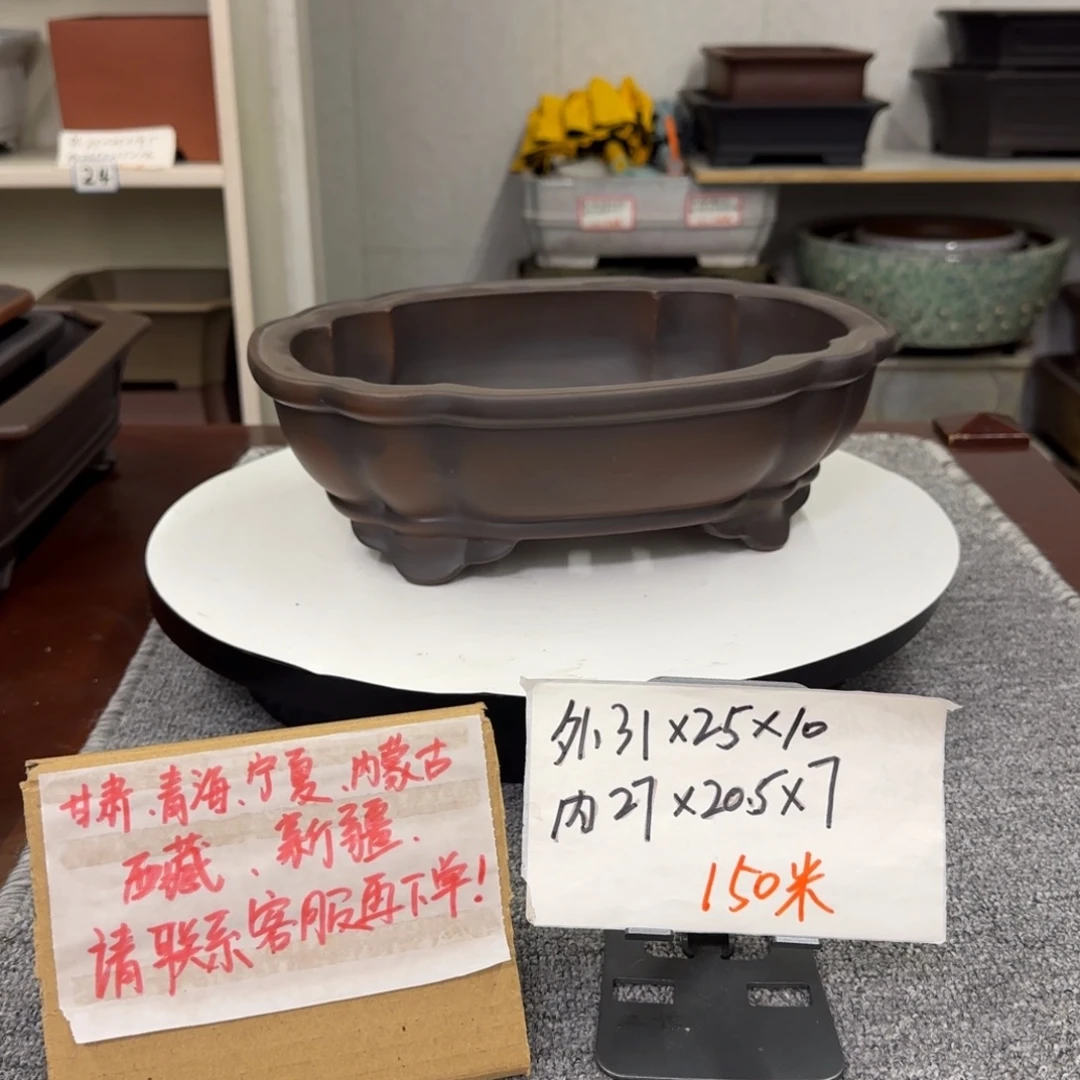 24
甘肃、青海、宁夏、内蒙古
西藏、新疆.
请联系客服再下单!
外31×25×10
内27×20.5×7
150米